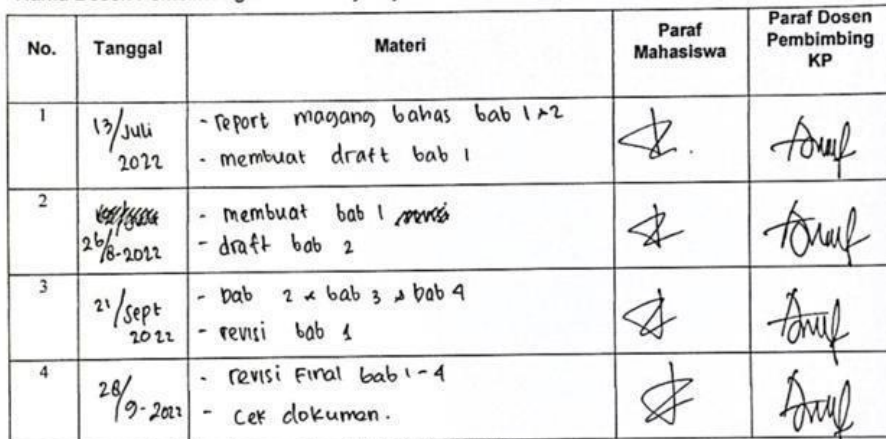 No. Tanggal Materi Paraf Mahasiswa Paraf Dosen Pembimbing KP
1 13/Juli 2022
- report magang bahas bab 1 & 2
- membuat draft bab 1
2 26/8-2022
- membuat bab 1
- draft bab 2
3 21/Sept 2022
- bab 2 & bab 3 & bab 4
- revisi bab 1
4 28/9-2022
- revisi Final bab 1-4
- cek dokumen.